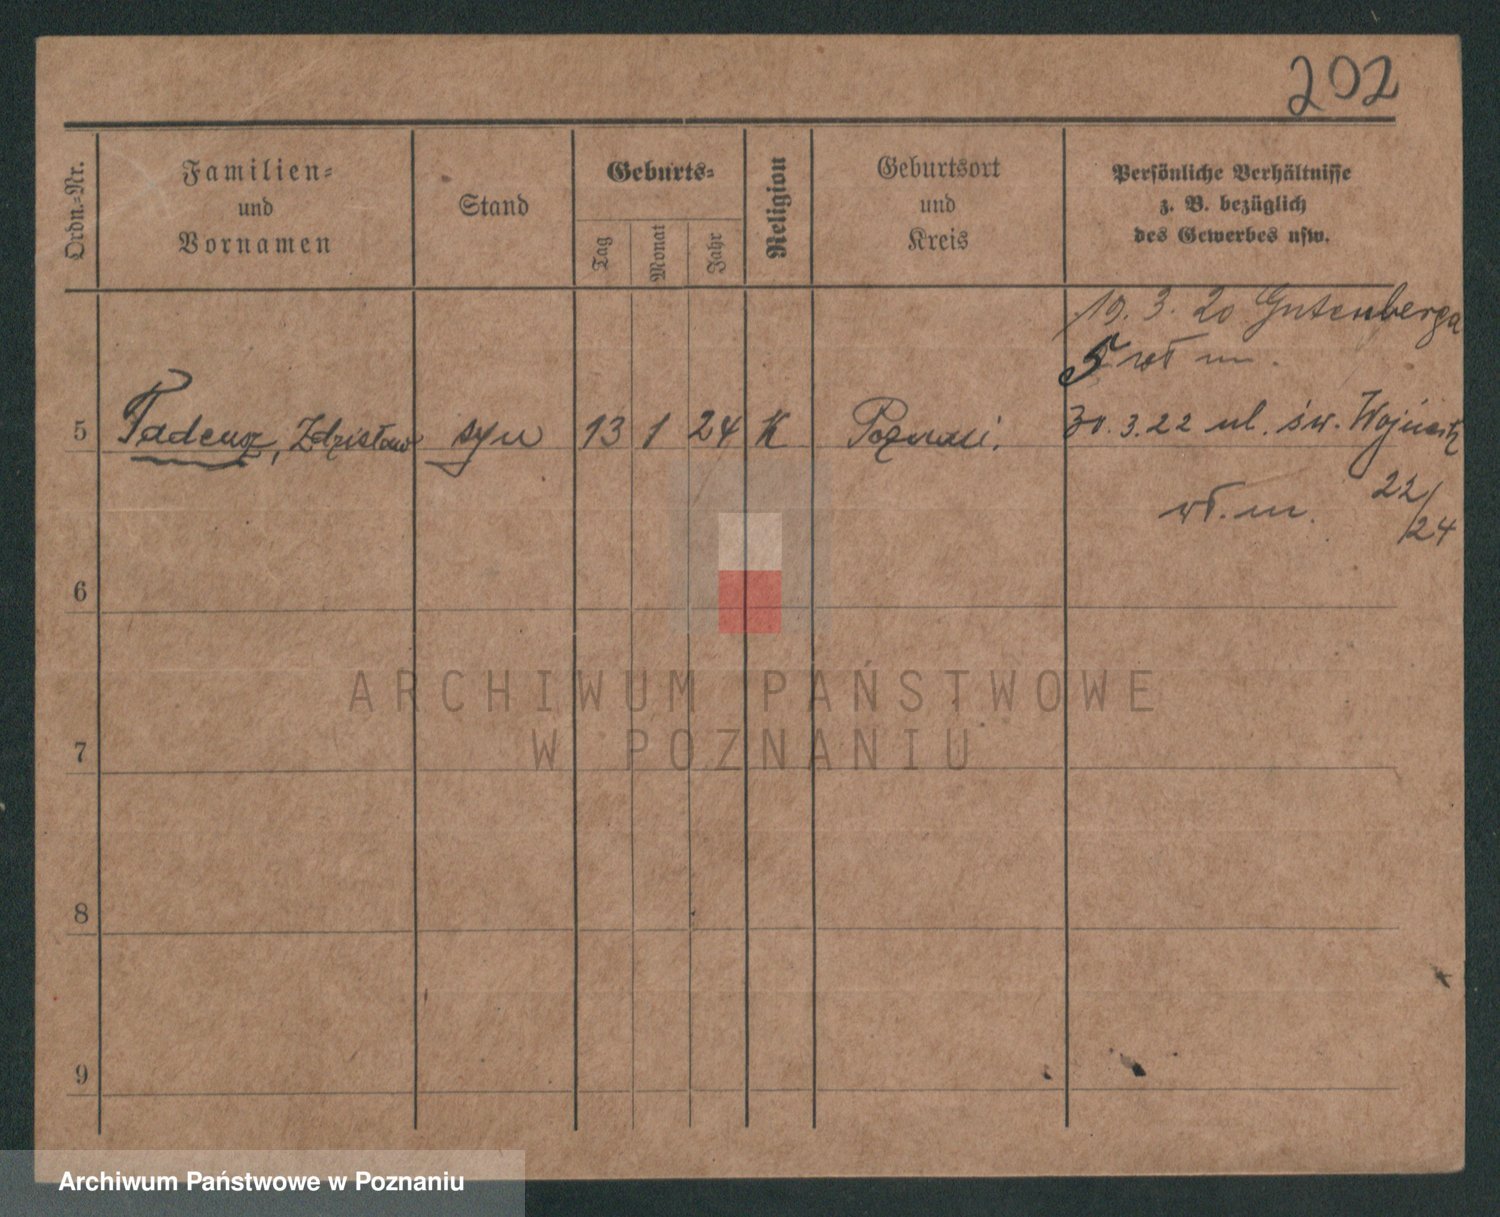 202
Ordn.-Nr.
Familien-
und
Vornamen
Stand
Geburts-
Tag
Monat
Jahr
Religion
Geburtsort
und
Kreis
Persönliche Verhältnisse
z. B. bezüglich
des Gewerbes usw.
19. 3. 20 Gutenberga
5 wł m.
5 Tadeusz, Zdzisław syn 13 1 24 K Poznań. 30.3.22 ul. św. Wojciech
wł. m. 22/24
6
7
8
9
ARCHIWUM PAŃSTWOWE
W POZNANIU
Archiwum Państwowe w Poznaniu